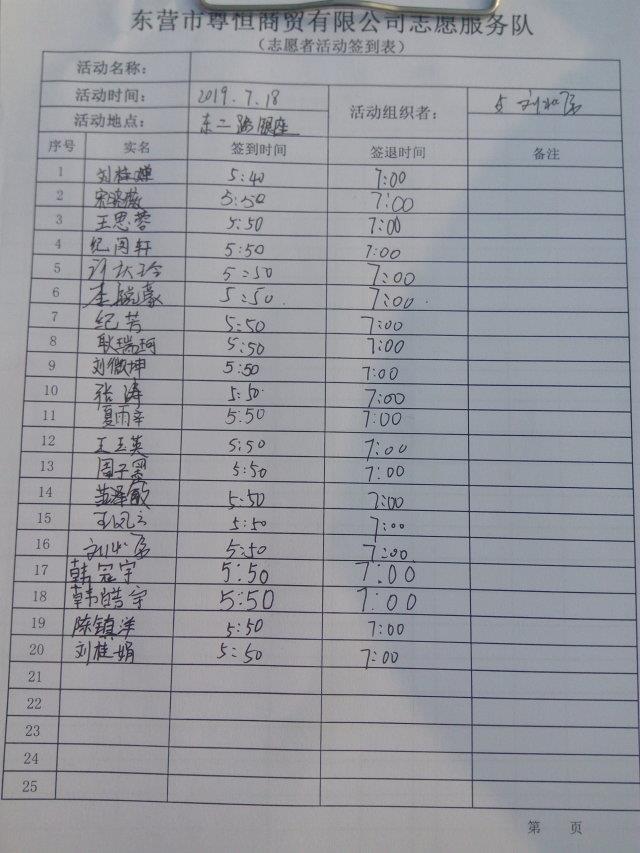 东营市尊恒商贸有限公司志愿服务队
（志愿者活动签到表）
活动名称：
活动时间： 2019.7.18 活动组织者：
活动地点： 东二路银座
序号 实名 签到时间 签退时间 备注
1 刘桂婵 5:40 7:00
2 宋晓薇 5:50 7:00
3 王思蓉 5:50 7:00
4 纪闵轩 5:50 7:00
5 5:50 7:00
6 李毓豪 5:50 7:00
7 纪芳 5:50 7:00
8 耿瑞珂 5:50 7:00
9 刘微坤 5:50 7:00
10 张涛 5:50 7:00
11 夏雨辛 5:50 7:00
12 王玉英 5:50 7:00
13 周子墨 5:50 7:00
14 5:50 7:00
15 5:50 7:00
16 5:50 7:00
17 韩冠宇 5:50 7:00
18 韩皓宇 5:50 7:00
19 陈镇洋 5:50 7:00
20 刘桂娟 5:50 7:00
21
22
23
24
25
第 页